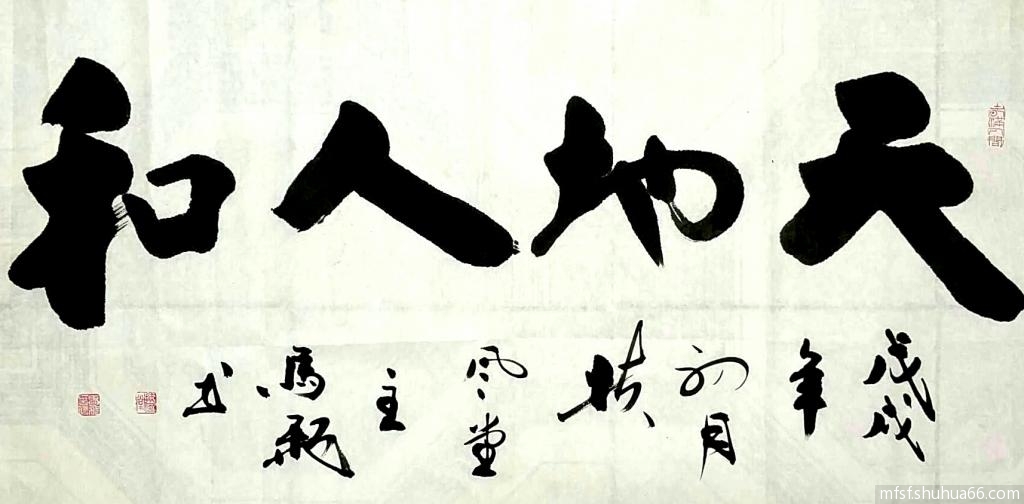 天地人和
戊戌
年
初月
风堂
主
马
书
mfsfshuhua66.com